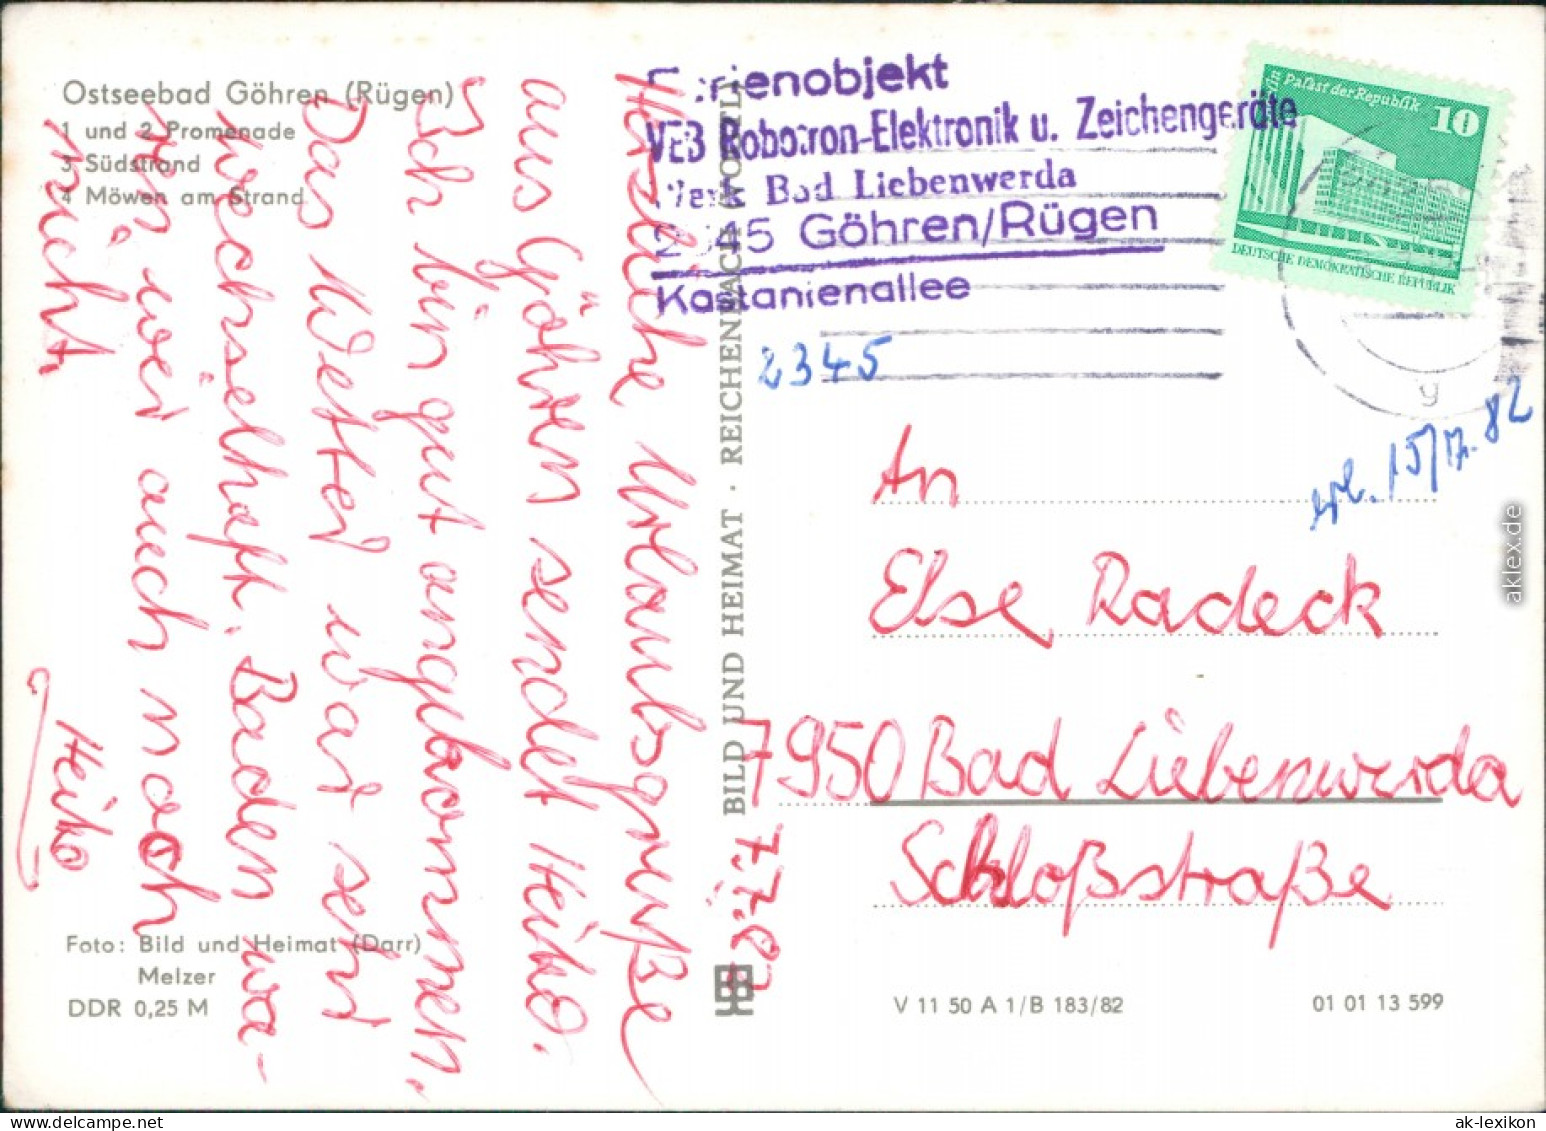 Ostseebad Göhren (Rügen)
1 und 2 Promenade
3 Südstrand
4 Möwen am Strand
Herzliche Urlaubsgrüße
aus Göhren sendet Heiko.
Ich bin gut angekommen.
Das Wetter war sehr
wechselhaft. Baden wa-
ren wir auch noch
nicht.
Heiko
7.7.82
Foto: Bild und Heimat (Darr)
Melzer
DDR 0,25 M
BILD UND HEIMAT · REICHENBACH (VOGTL)
Ferienobjekt
VEB Robotron-Elektronik u. Zeichengeräte
Werk Bad Liebenwerda
2345 Göhren/Rügen
Kastanienallee
2345
Palast der Republik
10
DEUTSCHE DEMOKRATISCHE REPUBLIK
g
An
Else Radeck
7950 Bad Liebenwerda
Schloßstraße
V 11 50 A 1/B 183/82
01 01 13 599
aklex.de
ak-lexikon.de